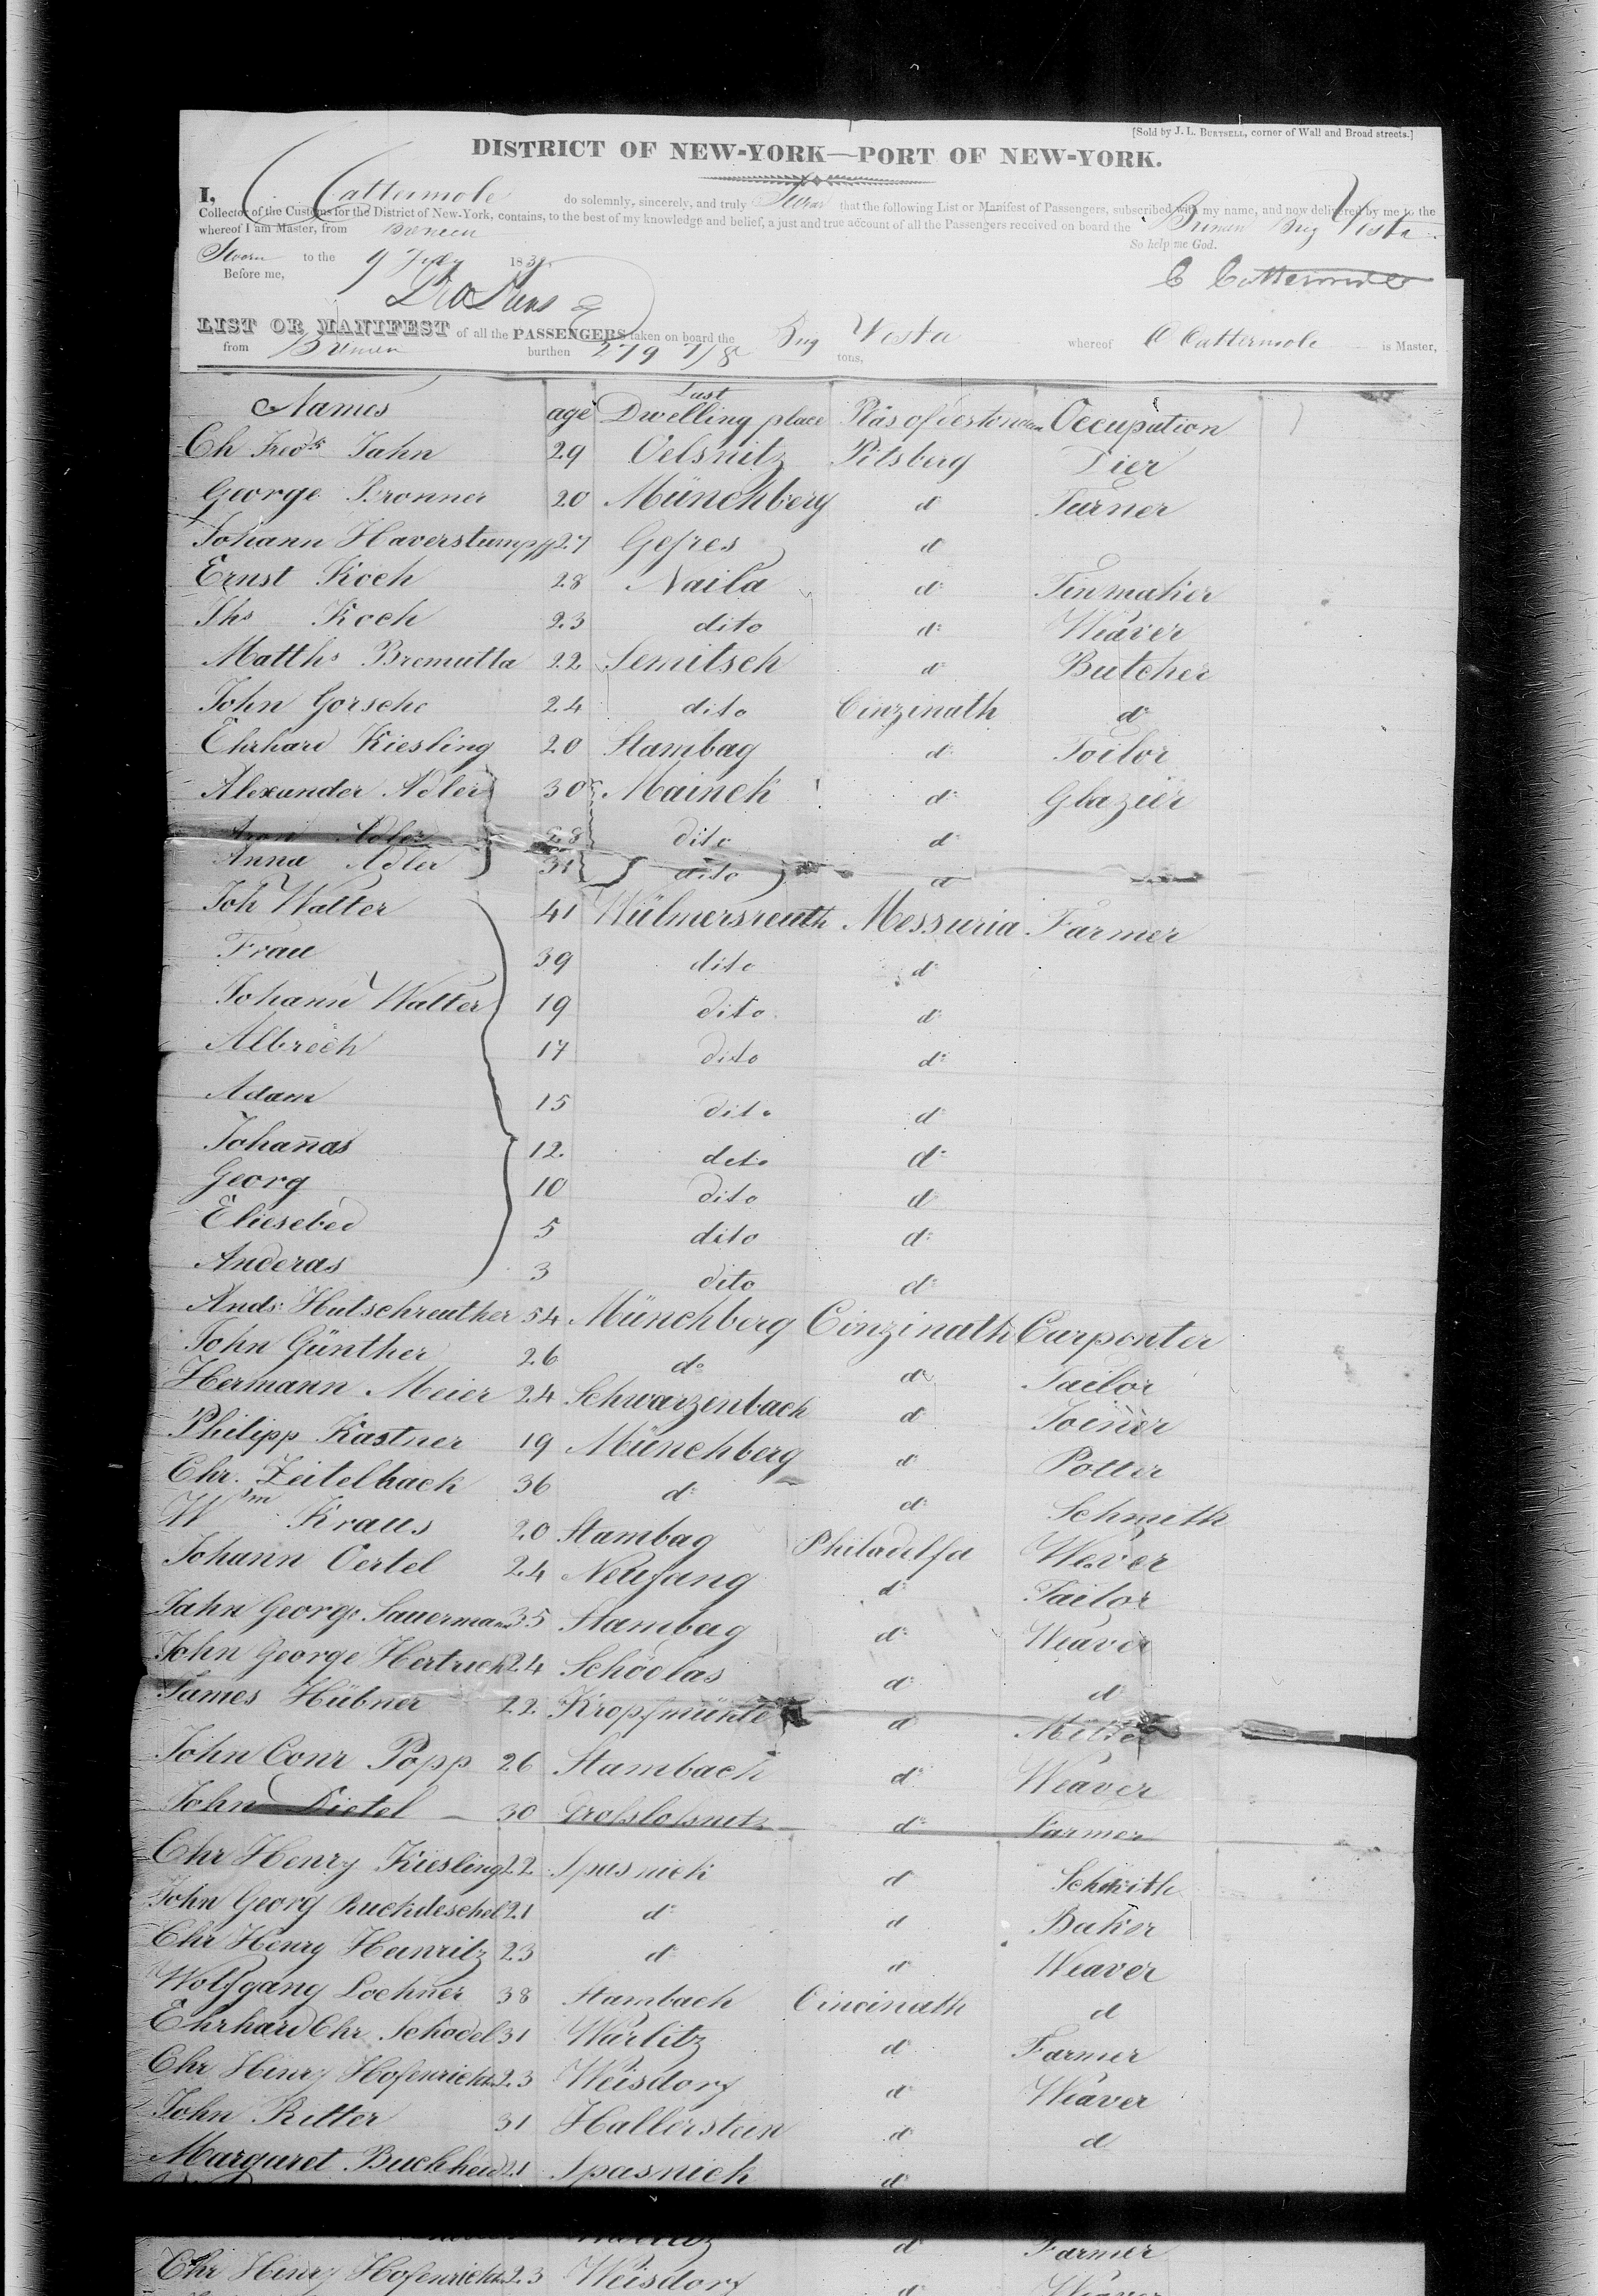 [Sold by J. L. BURTSELL, corner of Wall and Broad streets.]
DISTRICT OF NEW-YORK—PORT OF NEW-YORK.
I, C. Cattermole do solemnly, sincerely, and truly Swear that the following List or Manifest of Passengers, subscribed with my name, and now delivered by me to the
Collector of the Customs for the District of New-York, contains, to the best of my knowledge and belief, a just and true account of all the Passengers received on board the Bremen Brig Vesta
whereof I am Master, from Bremen So help me God.
Sworn to the 9 July 183
Before me, C Cattermole
LIST OR MANIFEST of all the PASSENGERS taken on board the Brig Vesta whereof C Cattermole is Master,
from Bremen burthen 279 7/8 tons,
Names age Last Dwelling place Plas of destination Occupation
Ch Fred Jahn 29 Oelsnitz Pitsberg Dier
George Bronner 20 Münchberg do Turner
Johann Haverstumpf 27 Gefres do
Ernst Koch 28 Naila do Tinmaker
Ths Koch 23 dito do Weaver
Matths Bremutta 22 Semitsch do Butcher
John Gorsche 24 dito Cinzinath do
Ehrhard Kiesling 20 Stambag do Toilor
Alexander Adler 30 Maineck do Glazier
Aron Adler 28 dito do
Anna Adler 31 dito do
Joh Walter 41 Wülmersreuth Messuria Farmer
Frau 39 dito do
Johann Walter 19 dito do
Albrech 17 dito do
Adam 15 dito do
Johanas 12 deto do
Georg 10 dito do
Eliesebed 5 dito do
Anderas 3 dito do
Ands Hutschreuther 54 Münchberg Cinzinath Carpenter
John Günther 26 do do Tailor
Hermann Meier 24 Schwarzenbach do Joiner
Philipp Kastner 19 Münchberg do Potter
Chr. Zeitelhack 36 do do Schmith
Wm Kraus 20 Stambag Philadelfa Wever
Johann Oertel 24 Neufang do Tailor
Jahn George Sauermann 35 Stambag do Weaver
John George Hertrich 24 Schödlas do do
James Hübner 22 Kropfmühle do Miller
John Conr Popp 26 Stambach do Weaver
John Dietel 30 Grosslosnitz do Farmer
Chr Henry Kiesling 22 Spasnick do Schmith
John Georg Ruckdeschel 21 do do Baker
Chr Henry Heinritz 23 do do Weaver
Wolfgang Lochner 38 Stambach Cincinath do
Ehrhard Chr. Schodel 31 Wurlitz do Farmer
Chr Henry Hofenrichter 23 Weisdorf do Weaver
John Ritter 31 Hallerstein do do
Margaret Buchheid 21 Spasnick do
do Farmer
Chr Henry Hofenrichter 23 Weisdorf do Weaver